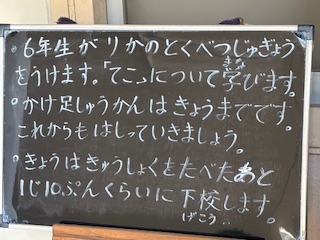 ・6年生がりかのとくべつじゅぎょう
をうけます。「てこ」について学びます。
まな
・かけ足しゅうかんはきょうまでです。
これからもはしっていきましょう。
・きょうはきゅうしょくをたべたあと
1じ10ぷんくらいに下校します。
げこう